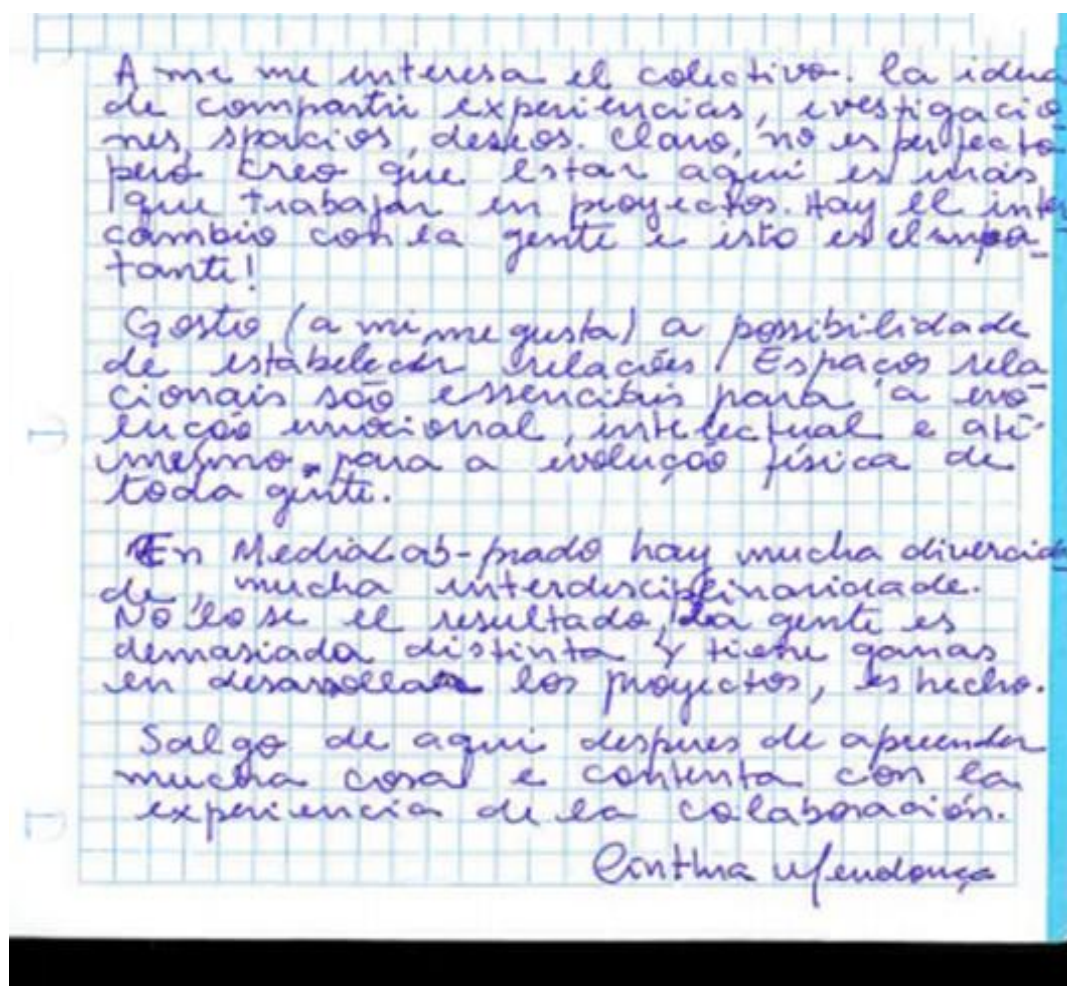 A mi me interesa el colectivo. la idea
de compartir experiencias, evestigacio
nes, spacios, deseos. Claro, no es perfecto
pero creo que estar aqui es más
que trabajar en proyectos. Hay el inter
cambio con la gente e isto es el impor-
tante!
Gosto (a mi me gusta) a possibilidade
de estabelecer relações. Espaços rela
cionais são essenciais para a evo
lução emocional, intelectual e até
mesmo para a evolução física de
toda gente.
En MediaLab-prado hay mucha divercida
de, mucha interdisciplinariedade.
No lo se el resultado, La gente es
demasiada distinta y tiene ganas
en desarollar los proyectos, es hecho.
Salgo de aqui despues de apreender
mucha cosa e contenta con la
experiencia de la colaboración.
Cinthia Mendonça